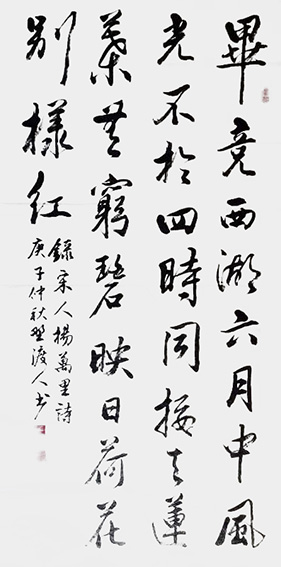 畢竟西湖六月中風
光不於四時同接天蓮
葉無窮碧映日荷花
别樣紅
錄宋人楊萬里詩
庚子仲秋埜渡人书